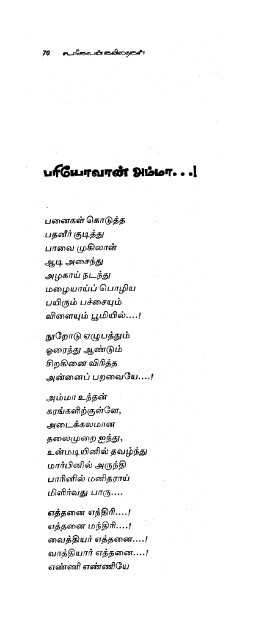 70 உவமைக் கவிதைகள்
பரியோவான் அம்மா...!
பனைகள் கொடுத்த
பதனீர் குடித்து
பாவை முகிலான்
ஆடி அசைந்து
அழகாய் நடந்து
மழையாய்ப் பொழிய
பயிரும் பச்சையும்
விளையும் பூமியில்....!
நூறோடு ஏழுபத்தும்
ஓரைந்து ஆண்டும்
சிறகினை விரித்த
அன்னைப் பறவையே....!
அம்மா உந்தன்
கரங்களிற்குள்ளே,
அடைக்கலமான
தலைமுறை ஐந்து,
உன்மடியினில் தவழ்ந்து
மார்பினில் அருந்தி
பாரினில் மனிதராய்
மிளிர்வது பாரு....
எத்தனை எந்திரி....!
எத்தனை மந்திரி....!
வைத்தியர் எத்தனை....!
வாத்தியார் எத்தனை....!
எண்ணி எண்ணியே